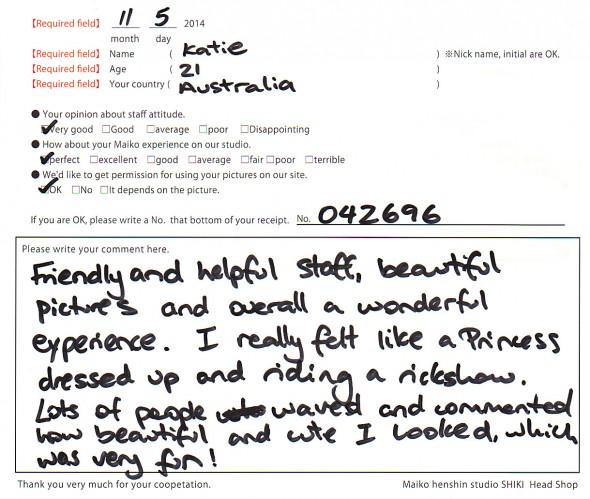 【Required field】 11 5 2014
month day
【Required field】 Name ( Katie ) ※Nick name, initial are OK.
【Required field】 Age ( 21 )
【Required field】 Your country ( Australia )
● Your opinion about staff attitude.
☑Very good □Good □average □poor □Disappointing
● How about your Maiko experience on our studio.
☑perfect □excellent □good □average □fair □poor □terrible
● We'd like to get permission for using your pictures on our site.
☑OK □No □It depends on the picture.
If you are OK, please write a No. that bottom of your receipt. No. 042696
Please write your comment here.
Friendly and helpful staff, beautiful
pictures and overall a wonderful
experience. I really felt like a Princess
dressed up and riding a rickshow.
Lots of people waved and commented
how beautiful and cute I looked, which
was very fun!
Thank you very much for your coopetation. Maiko henshin studio SHIKI Head Shop